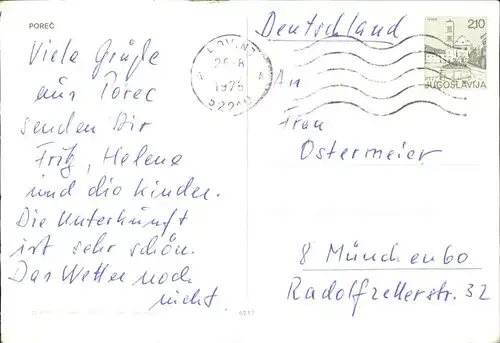 POREČ
Viele Grüße
aus Porec
senden Dir
Fritz, Helene
und die Kinder.
Die Unterkunft
ist sehr schön.
Das Wetter noch
nicht.
6217
Deutschland
1975
210
JUGOSLAVIJA
An
Frau
Ostermeier
8 München 60
Radolfzellerstr. 32